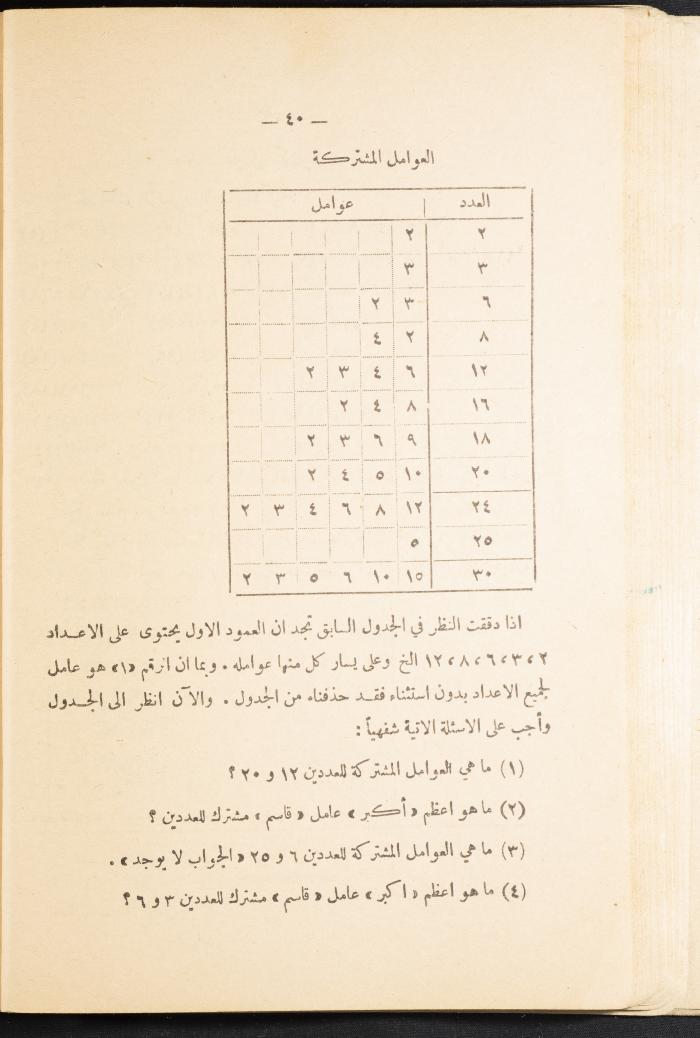 — ٤٠ —
العوامل المشتركة
العدد عوامل
٢ ٢
٣ ٣
٦ ٣ ٢
٨ ٢ ٤
١٢ ٦ ٤ ٣ ٢
١٦ ٨ ٤ ٢
١٨ ٩ ٦ ٣ ٢
٢٠ ١٠ ٥ ٤ ٢
٢٤ ١٢ ٨ ٦ ٤ ٣ ٢
٢٥ ٥
٣٠ ١٥ ١٠ ٦ ٥ ٣ ٢
اذا دققت النظر في الجدول السابق تجد ان العمود الاول يحتوى على الاعداد
٢،٣،٦،٨،١٢ الخ وعلى يسار كل منها عوامله . وبما ان الرقم «١» هو عامل
لجميع الاعداد بدون استثناء فقد حذفناه من الجدول . والآن انظر الى الجدول
وأجب على الاسئلة الاتية شفهياً :
(١) ما هي العوامل المشتركة للعددين ١٢ و ٢٠ ؟
(٢) ما هو اعظم «أكبر» عامل «قاسم» مشترك للعددين ؟
(٣) ما هي العوامل المشتركة للعددين ٦ و ٢٥ «الجواب لا يوجد» .
(٤) ما هو اعظم «اكبر» عامل «قاسم» مشترك للعددين ٣ و ٦ ؟